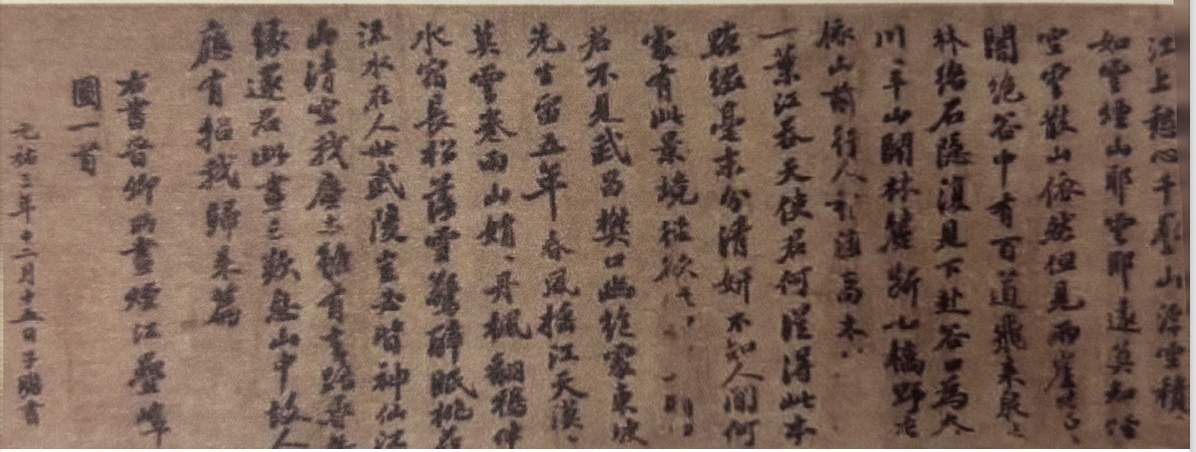 江上愁心千疊山浮空積
如雲煙山耶雲耶遠莫知煙
空雲散山依然但見兩崖蒼〻
闇絕谷中有百道飛來泉
林絡石隱復見下赴谷口為
川川平山開林麓斷小橋野店
依山前行人稍渡喬木
一葉江吞天使君何從得此本
點綴毫末分清妍不知人間何
處有此景境徑欲
君不見武昌樊口幽絕處東坡
先生留五年春風搖江天漠〻
莫雲卷雨山娟〻丹楓翻鴉伴
水宿長松落雪驚醉眠桃花
流水在人世武陵豈必皆神仙江
山清空我塵土雖有去路尋無
緣還君此畫三歎息山中故人
應有招我歸來篇
右書晉卿所畫煙江疊嶂
圖一首
元祐三年十二月十五日子瞻書